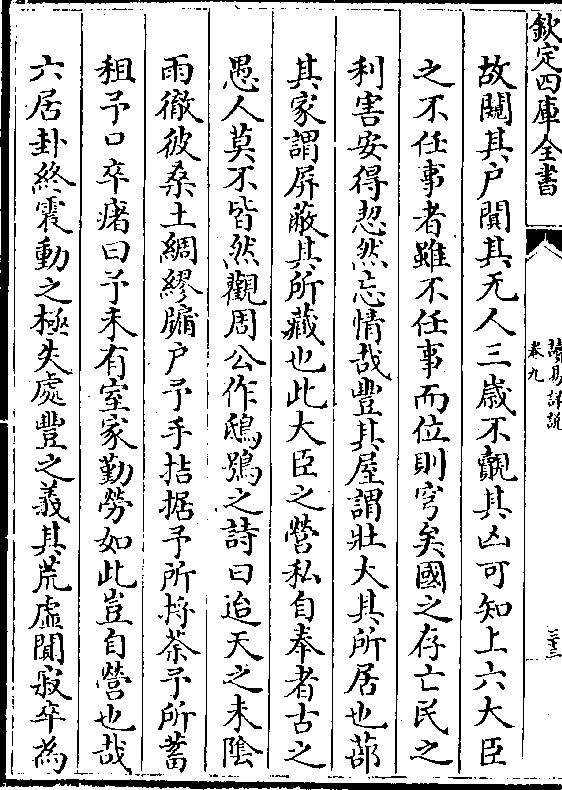 欽定四庫全書
讀易詳説
卷九
三十三
故闚其户闃其无人三歳不覿其凶可知上六大臣
之不任事者雖不任事而位則穹矣國之存亡民之
利害安得恝然忘情哉豐其屋謂壯大其所居也蔀
其家謂屏蔽其所藏也此大臣之營私自奉者古之
愚人莫不皆然觀周公作鴟鴞之詩曰迨天之未隂
雨徹彼桑土綢繆牖户予手拮据予所捋荼予所蓄
租予口卒瘏曰予未有室家勤勞如此豈自營也哉
六居卦終震動之極失處豐之義其荒虛闃寂卒為